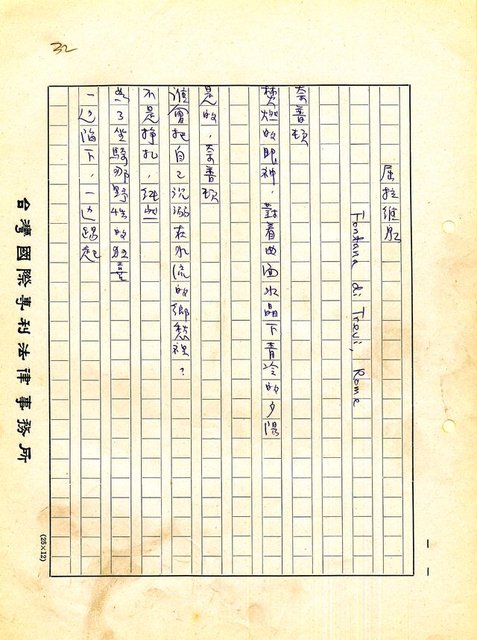 32
屈拉維尼
Fontana di Trevi, Rome
奈普頓
焚燃的眼神，對著曲面水晶下青冷的夕陽
是的，奈普頓
誰會把自己沉溺在水流的鄉愁裡？
不是掙扎，純然
為了坐騎那野性的狂喜
一边陷下，一边躍起
台灣國際專利法律事務所
(25×12)